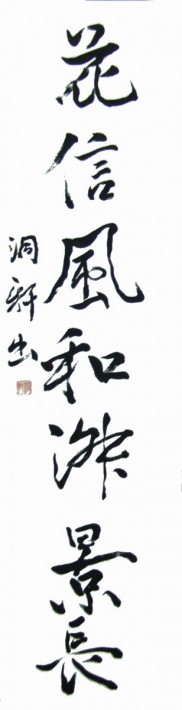 花信風和淑景長
洞軒書